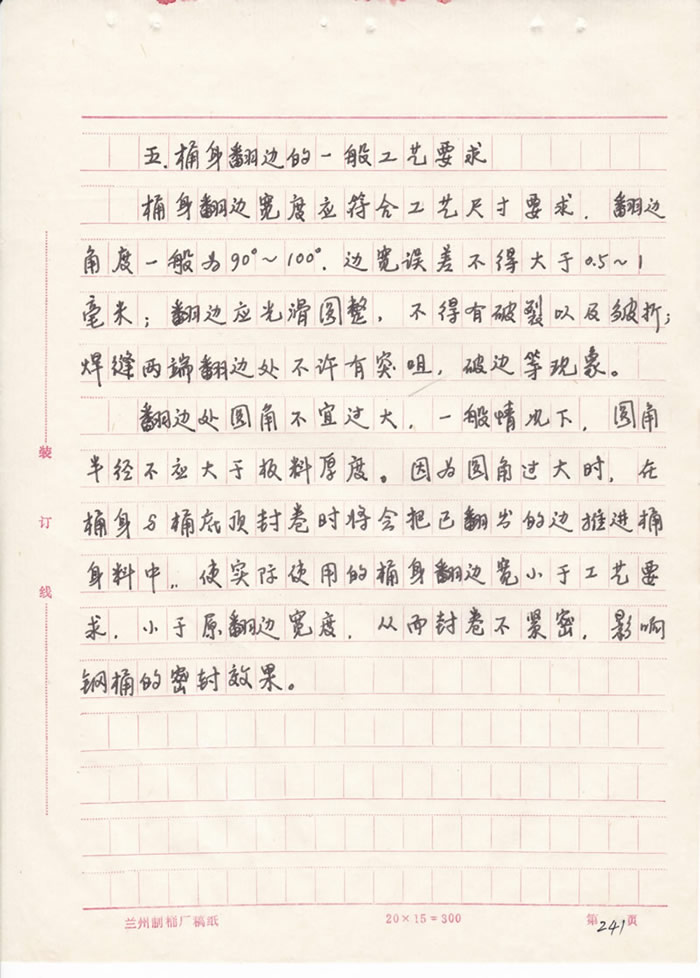 五.桶身翻边的一般工艺要求
桶身翻边宽度应符合工艺尺寸要求.翻边
角度一般为90°~100°.边宽误差不得大于0.5~1
毫米；翻边应光滑圆整，不得有破裂以及皱折；
焊缝两端翻边处不许有突咀，破边等现象。
翻边处圆角不宜过大，一般情况下，圆角
半径不应大于板料厚度。因为圆角过大时，在
桶身与桶底顶封卷时将会把已翻出的边推进桶
身料中..使实际使用的桶身翻边宽小于工艺要
求，小于原翻边宽度，从而封卷不紧密，影响
钢桶的密封效果。
装
订
线
兰州制桶厂稿纸 20×15=300 第241页